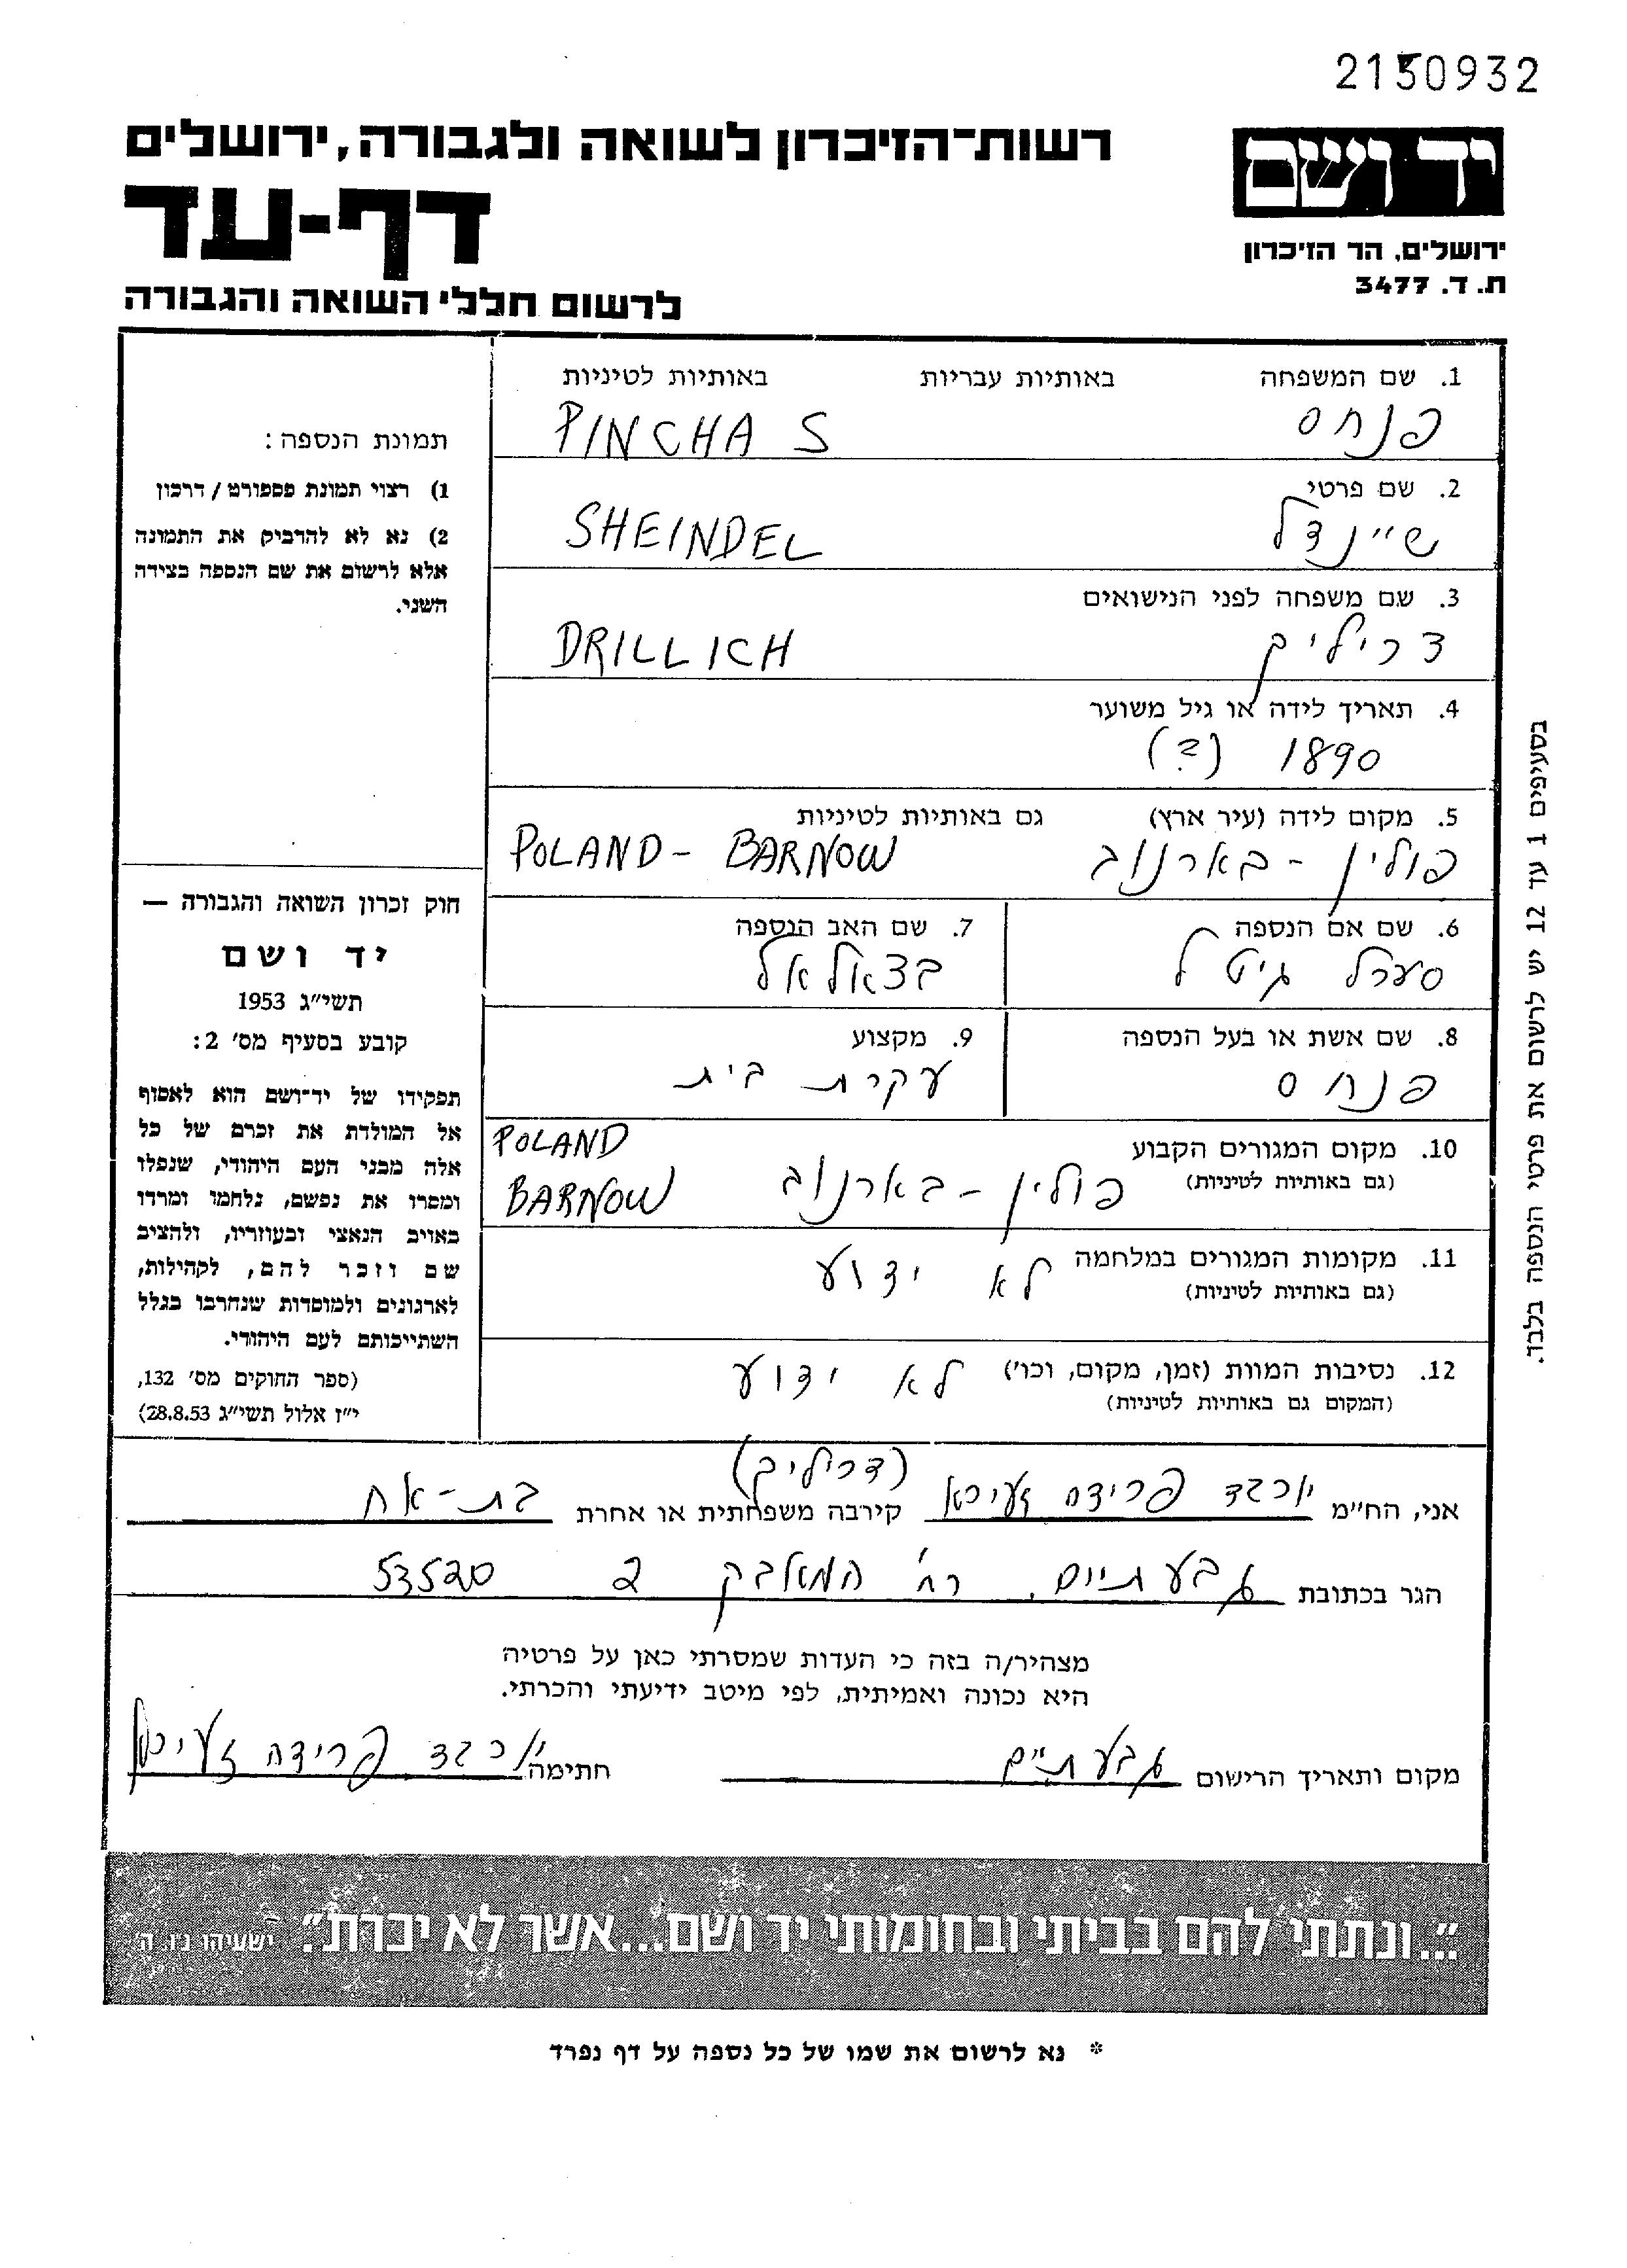 2150932
רשות־הזיכרון לשואה ולגבורה, ירושלים
יד ושם
דף-עד
ירושלים, הר הזיכרון
ת. ד. 3477
לרשום חללי השואה והגבורה
1. שם המשפחה באותיות עבריות באותיות לטיניות
פנחס PINCHAS
2. שם פרטי
שיינדל SHEINDEL
3. שם משפחה לפני הנישואים
דריליך DRILLICH
4. תאריך לידה או גיל משוער
1890 (?)
5. מקום לידה (עיר ארץ) גם באותיות לטיניות
פולין - בארנוב POLAND - BARNOW
6. שם אם הנספה
סערל גיטל
7. שם האב הנספה
בצאלאל
8. שם אשת או בעל הנספה
פנחס
9. מקצוע
עקרת בית
10. מקום המגורים הקבוע
(גם באותיות לטיניות)
פולין - בארנוב
POLAND
BARNOW
11. מקומות המגורים במלחמה
(גם באותיות לטיניות)
לא ידוע
12. נסיבות המוות (זמן, מקום, וכו')
(המקום גם באותיות לטיניות)
לא ידוע
תמונת הנספה:
1) רצוי תמונת פספורט / דרכון
2) נא לא להדביק את התמונה
אלא לרשום את שם הנספה בצידה
השני.
חוק זכרון השואה והגבורה —
יד ושם
תשי״ג 1953
קובע בסעיף מס׳ 2:
תפקידו של יד־ושם הוא לאסוף
אל המולדת את זכרם של כל
אלה מבני העם היהודי, שנפלו
ומסרו את נפשם, נלחמו ומרדו
באויב הנאצי ובעוזריו, ולהציב
שם וזכר להם, לקהילות,
לארגונים ולמוסדות שנחרבו בגלל
השתייכותם לעם היהודי.
(ספר החוקים מס׳ 132,
י״ז אלול תשי״ג 28.8.53)
בסעיפים 1 עד 12 יש לרשום את פרטי הנספה בלבד.
(דריליך)
אני, הח״מ פרידה זעירא קירבה משפחתית או אחרת בת-אח
הגר בכתובת גבעתיים, רח' המאבק 2 53520
מצהיר/ה בזה כי העדות שמסרתי כאן על פרטיה
היא נכונה ואמיתית, לפי מיטב ידיעתי והכרתי.
מקום ותאריך הרישום גבעתיים חתימה פרידה זעירא
״...ונתתי להם בביתי ובחומותי יד ושם...אשר לא יכרת״. ישעיהו נ״ו, ה׳
* נא לרשום את שמו של כל נספה על דף נפרד